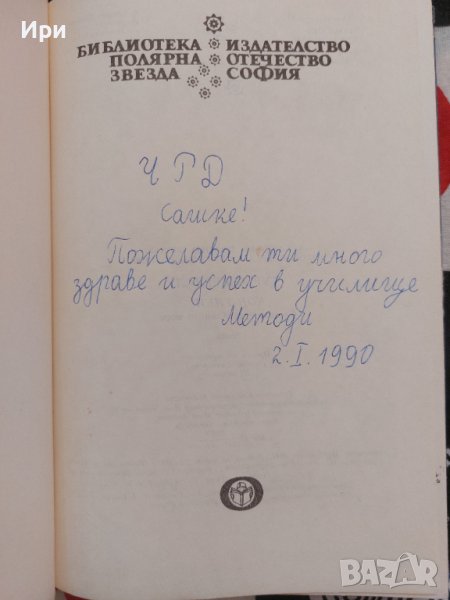 Ири
БИБЛИОТЕКА ИЗДАТЕЛСТВО
ПОЛЯРНА ОТЕЧЕСТВО
ЗВЕЗДА СОФИЯ
Ч Г Д
Сашке!
Пожелавам ти много
здраве и успех в училище
Методи
2. I. 1990
BAZAR